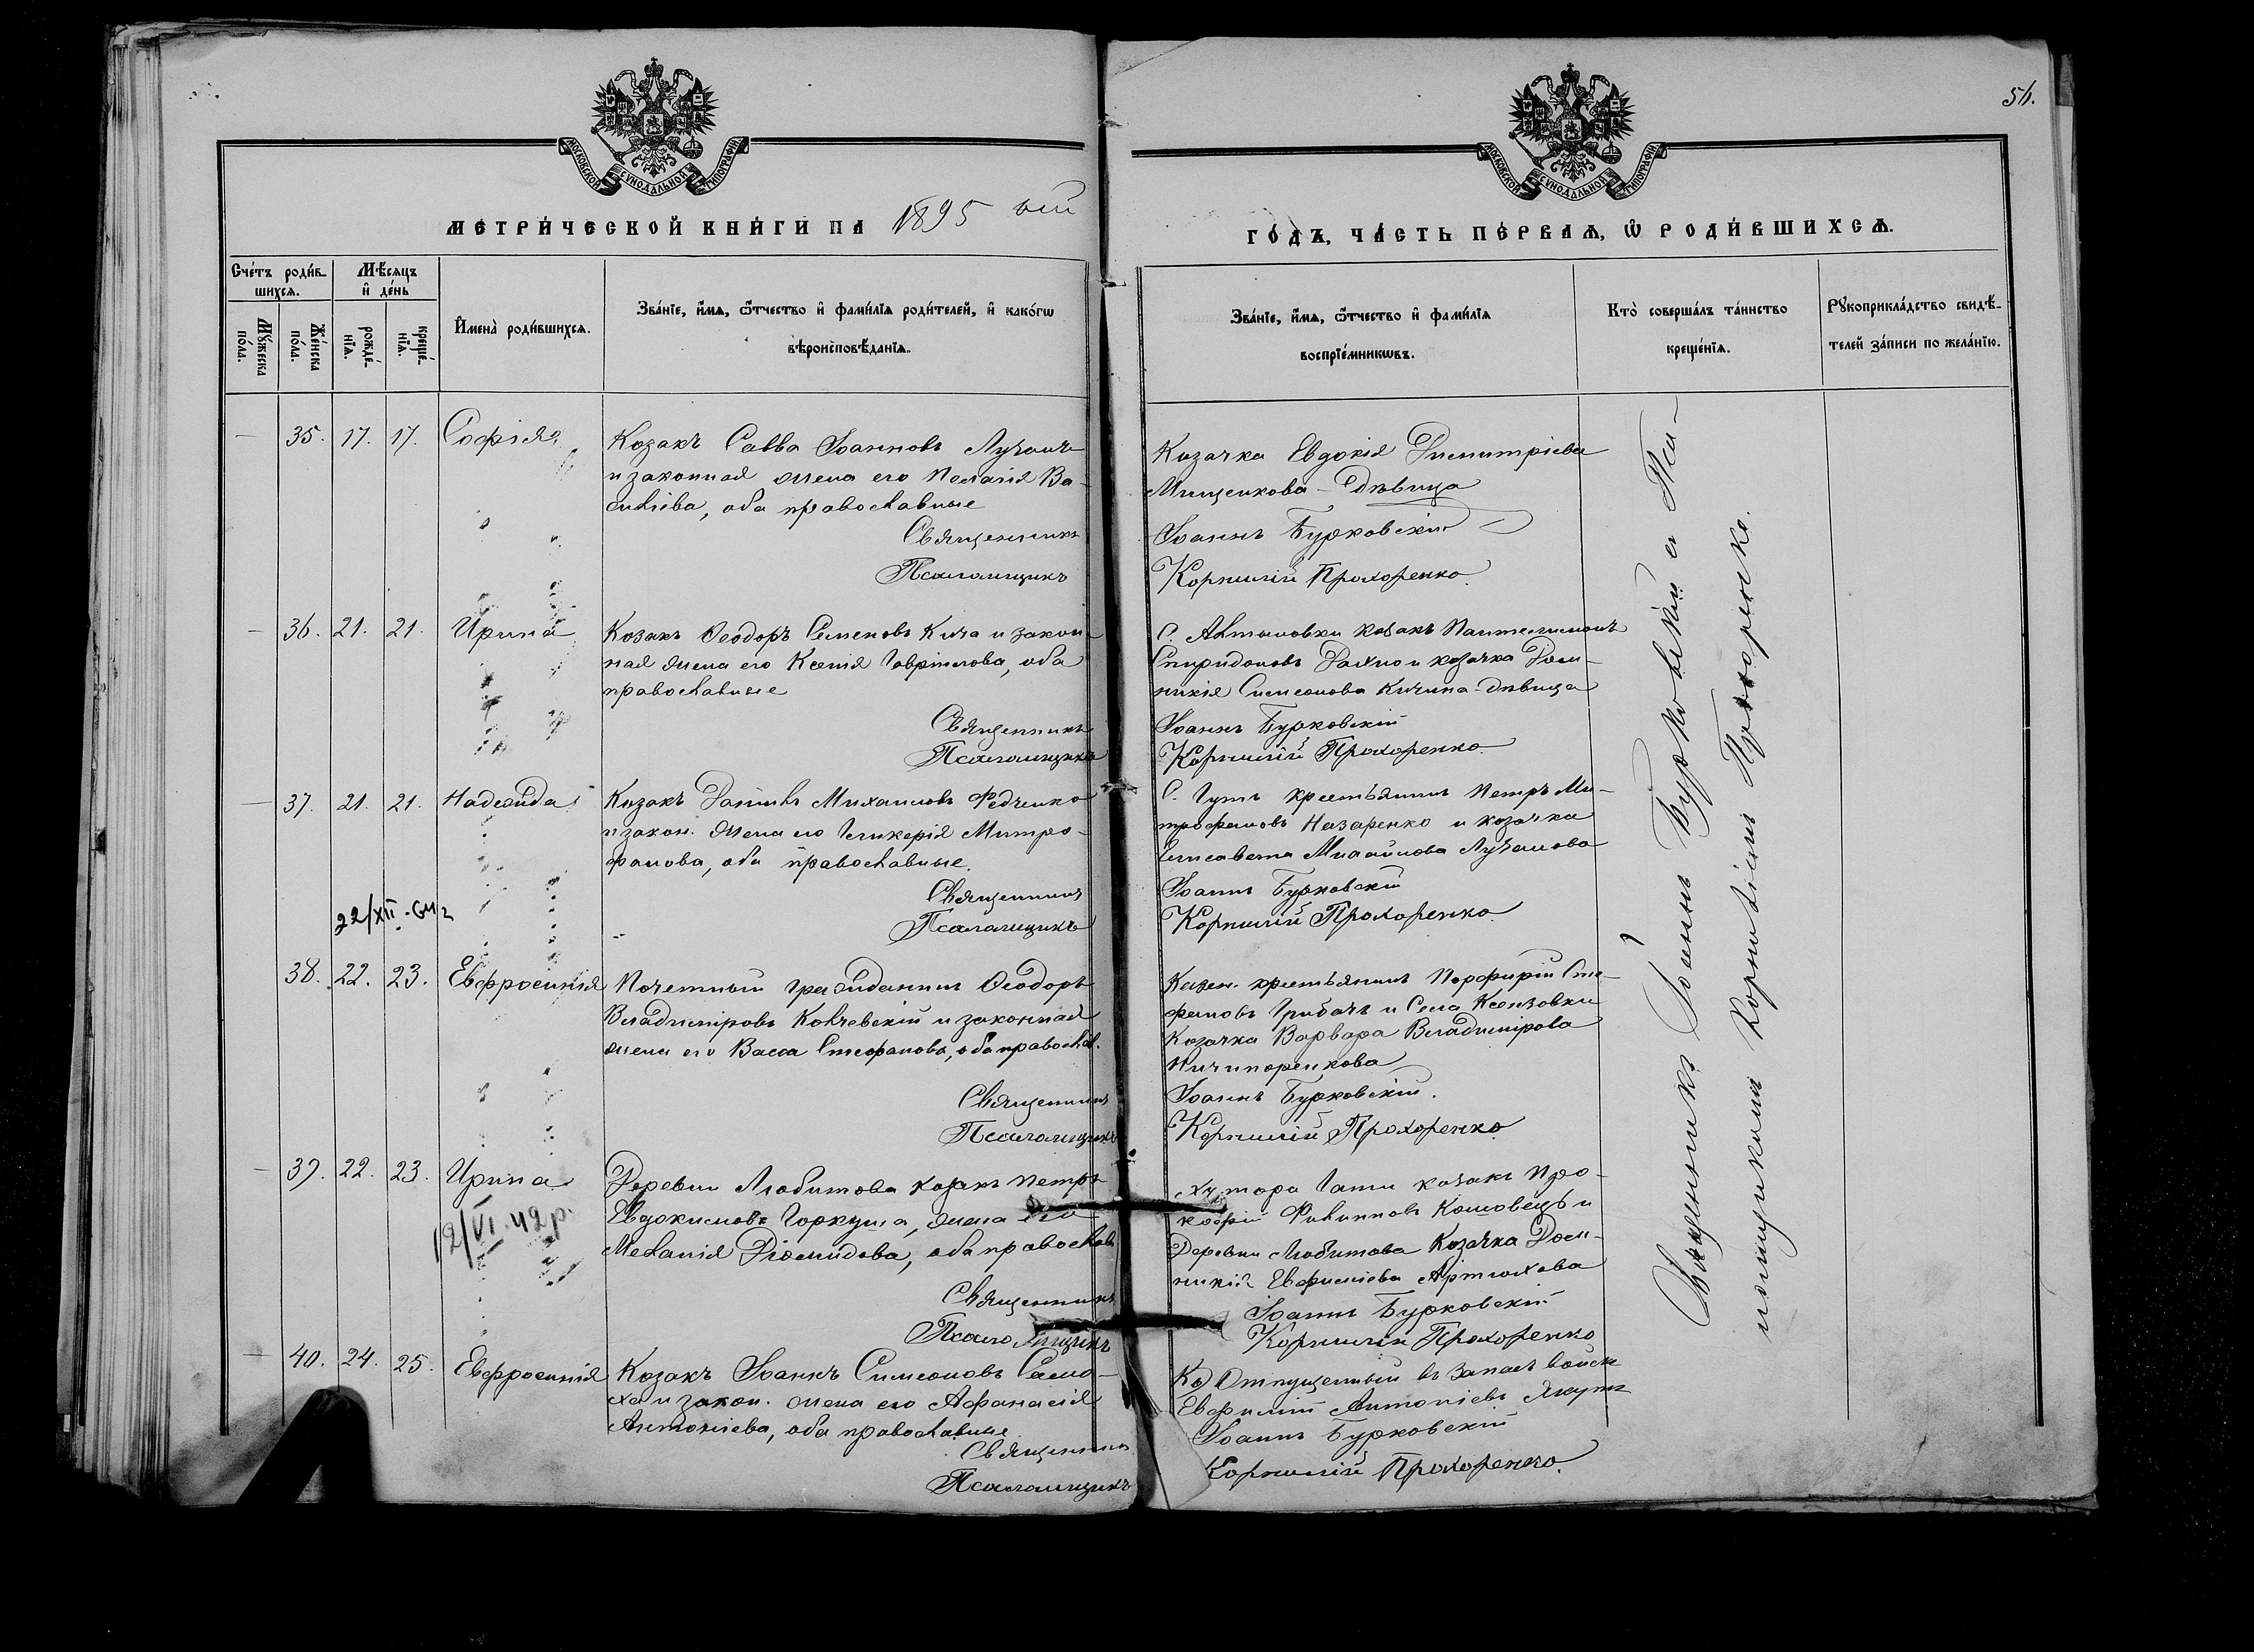 56.
МОСКОВСКОЙ СѴНОДАЛЬНОЙ ТИПОГРАФІИ
МОСКОВСКОЙ СѴНОДАЛЬНОЙ ТИПОГРАФІИ
МЕТРИ́ЧЕСКОЙ КНИ́ГИ НА 1895 ый
ГО́ДЪ, ЧА́СТЬ ПЕ́РВАѦ, Ѡ РОДИ́ВШИХСѦ.
Сче́тъ роди́вшихсѧ.
Мѣ́сяцъ и де́нь
Мꙋ́жеска по́ла.
Же́нска по́ла.
рожде́нїѧ.
креще́нїѧ.
Имена̀ роди́вшихсѧ.
Зва́нїе, и́мѧ, ѻ́тчество и фами́лїѧ роди́телей, и како́гѡ
вѣроисповѣ́данїѧ.
Зва́нїе, и́мѧ, ѻ́тчество и фами́лїѧ
воспрїе́мникѡвъ.
Кто̀ соверша́лъ та́инство
креще́нїѧ.
Рꙋкоприкла́дство свидѣ́-
телей за́писи по жела́нїю.
35. 17. 17. Софія
Козакъ Савва Іоанновъ
и законная жена его Пелагія Ва-
силіева, оба православные
Священникъ
Псаломщикъ
Козачка Евдокія Димитріева
Мищенкова - дѣвица
Іоаннъ Бурковскій
Корнилій Прохоренко.
36. 21. 21. Ирина
Козакъ Ѳеодоръ Сименовъ Кича и закон-
ная жена его Ксенія Гавріилова, оба
православные
Священникъ
Псаломщикъ
С. козакъ Пантелимонъ
Спиридоновъ и козачка Дом-
никія Симеонова Кичина - дѣвица
Іоаннъ Бурковскій
Корнилій Прохоренко.
37. 21. 21. Надежда
Козакъ Даніилъ Михаиловъ Федченко
и закон. жена его Гликерія Митро-
фанова, оба православные.
Священникъ
Псаломщикъ
С. Гутъ крестьянинъ Петръ Ми-
трофановъ Назаренко и козачка
Елисавета Михаилова
Іоаннъ Бурковскій
Корнилій Прохоренко.
22/XII
38. 22. 23. Евфросинія
Почетный гражданинъ Ѳеодоръ
Владиміровъ и законная
жена его Васса Стефанова, оба православ.
Священникъ
Псаломщикъ
Казен. крестьянинъ Порфирій Сте-
фановъ Грибачъ и Села Ксензовки
Козачка Варвара Владимірова
Ничипоренкова
Іоаннъ Бурковскій.
Корнилій Прохоренко
39. 22. 23. Ирина
12/VI 42 р.
Деревни Любитова козакъ Петръ
Евдокимовъ Горкуша, жена его
Меланія Діомидова, оба православ.
Священникъ
Псаломщикъ
Хутора Гати козакъ Про-
кофій Филипповъ Кошовецъ и
Деревни Любитова Козачка Дом-
никія Евфиміева Артюхова
Іоаннъ Бурковскій
Корнилій Прохоренко
40. 24. 25. Евфросинія
Козакъ Іоаннъ Симеоновъ Само-
ха и закон. жена его Афанасія
Антоніева, оба православные.
Священникъ
Псаломщикъ
Отпущенный въ запасъ войск
Евфимій Антоніевъ
Іоаннъ Бурковскій
Корнилій Прохоренко.
Священникъ Іоаннъ Бурковскій съ Пса-
ломщикомъ Корниліемъ Прохоренко.